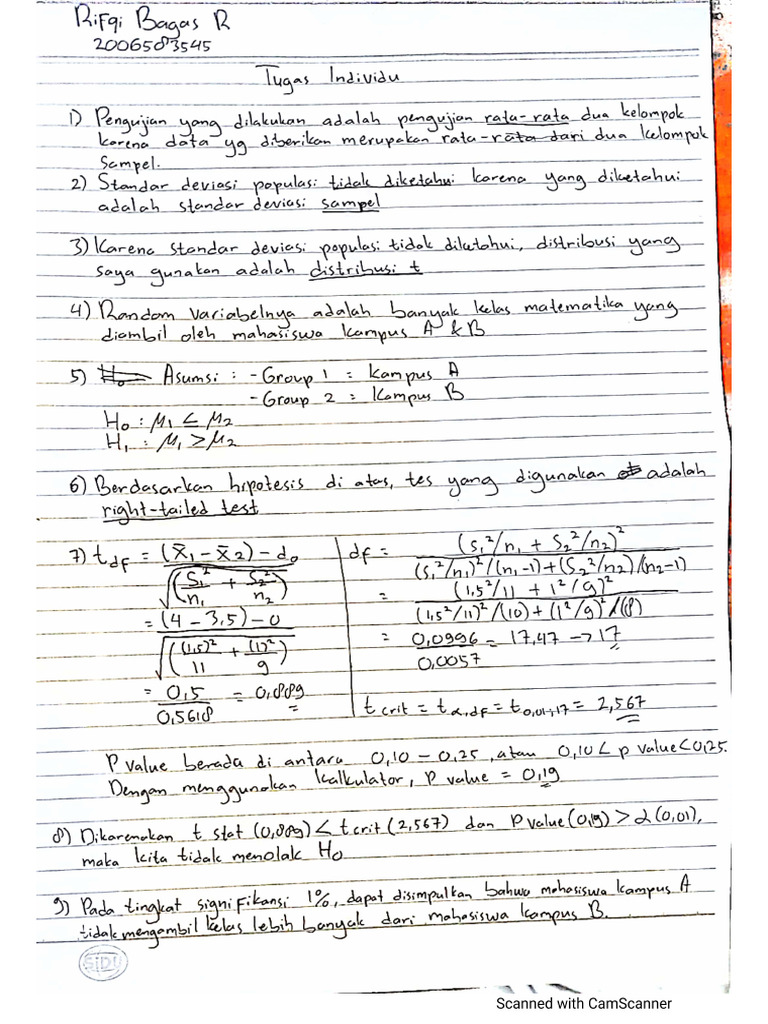 Rifqi Bagas R
2006583545
Tugas Individu
1) Pengujian yang dilakukan adalah pengujian rata-rata dua kelompok
karena data yg diberikan merupakan rata-rata dari dua kelompok
Sampel.
2) Standar deviasi populasi tidak diketahui karena yang diketahui
adalah standar deviasi sampel
3) Karena standar deviasi populasi tidak diketahui, distribusi yang
saya gunakan adalah distribusi t
4) Random variabelnya adalah banyak kelas matematika yang
diambil oleh mahasiswa kampus A & B
5) H₀ Asumsi : - Group 1 = Kampus A
- Group 2 = Kampus B
H₀ : μ₁ ≤ μ₂
H₁ : μ₁ > μ₂
6) Berdasarkan hipotesis di atas, tes yang digunakan adalah
right-tailed test
7) t df = (x̄₁ - x̄₂) - d₀ / √(S₁²/n₁ + S₂²/n₂)
= (4 - 3,5) - 0 / √((1,5)²/11 + (1)²/9)
= 0,5 / 0,5618 = 0,889
df = (S₁²/n₁ + S₂²/n₂)² / (S₁²/n₁)²/(n₁-1) + (S₂²/n₂)/(n₂-1)
= (1,5²/11 + 1²/9)² / (1,5²/11)²/(10) + (1²/9)²/(8)
= 0,0996 / 0,0057 = 17,47 → 17
t crit = t α,df = t 0,01,17 = 2,567
P value berada di antara 0,10 - 0,25, atau 0,10 < p value < 0,25.
Dengan menggunakan kalkulator, P value = 0,19
8) Dikarenakan t stat (0,889) < t crit (2,567) dan P value (0,19) > α (0,01),
maka kita tidak menolak H₀
9) Pada tingkat signifikansi 1%, dapat disimpulkan bahwa mahasiswa kampus A
tidak mengambil kelas lebih banyak dari mahasiswa kampus B.
SIDU
Scanned with CamScanner